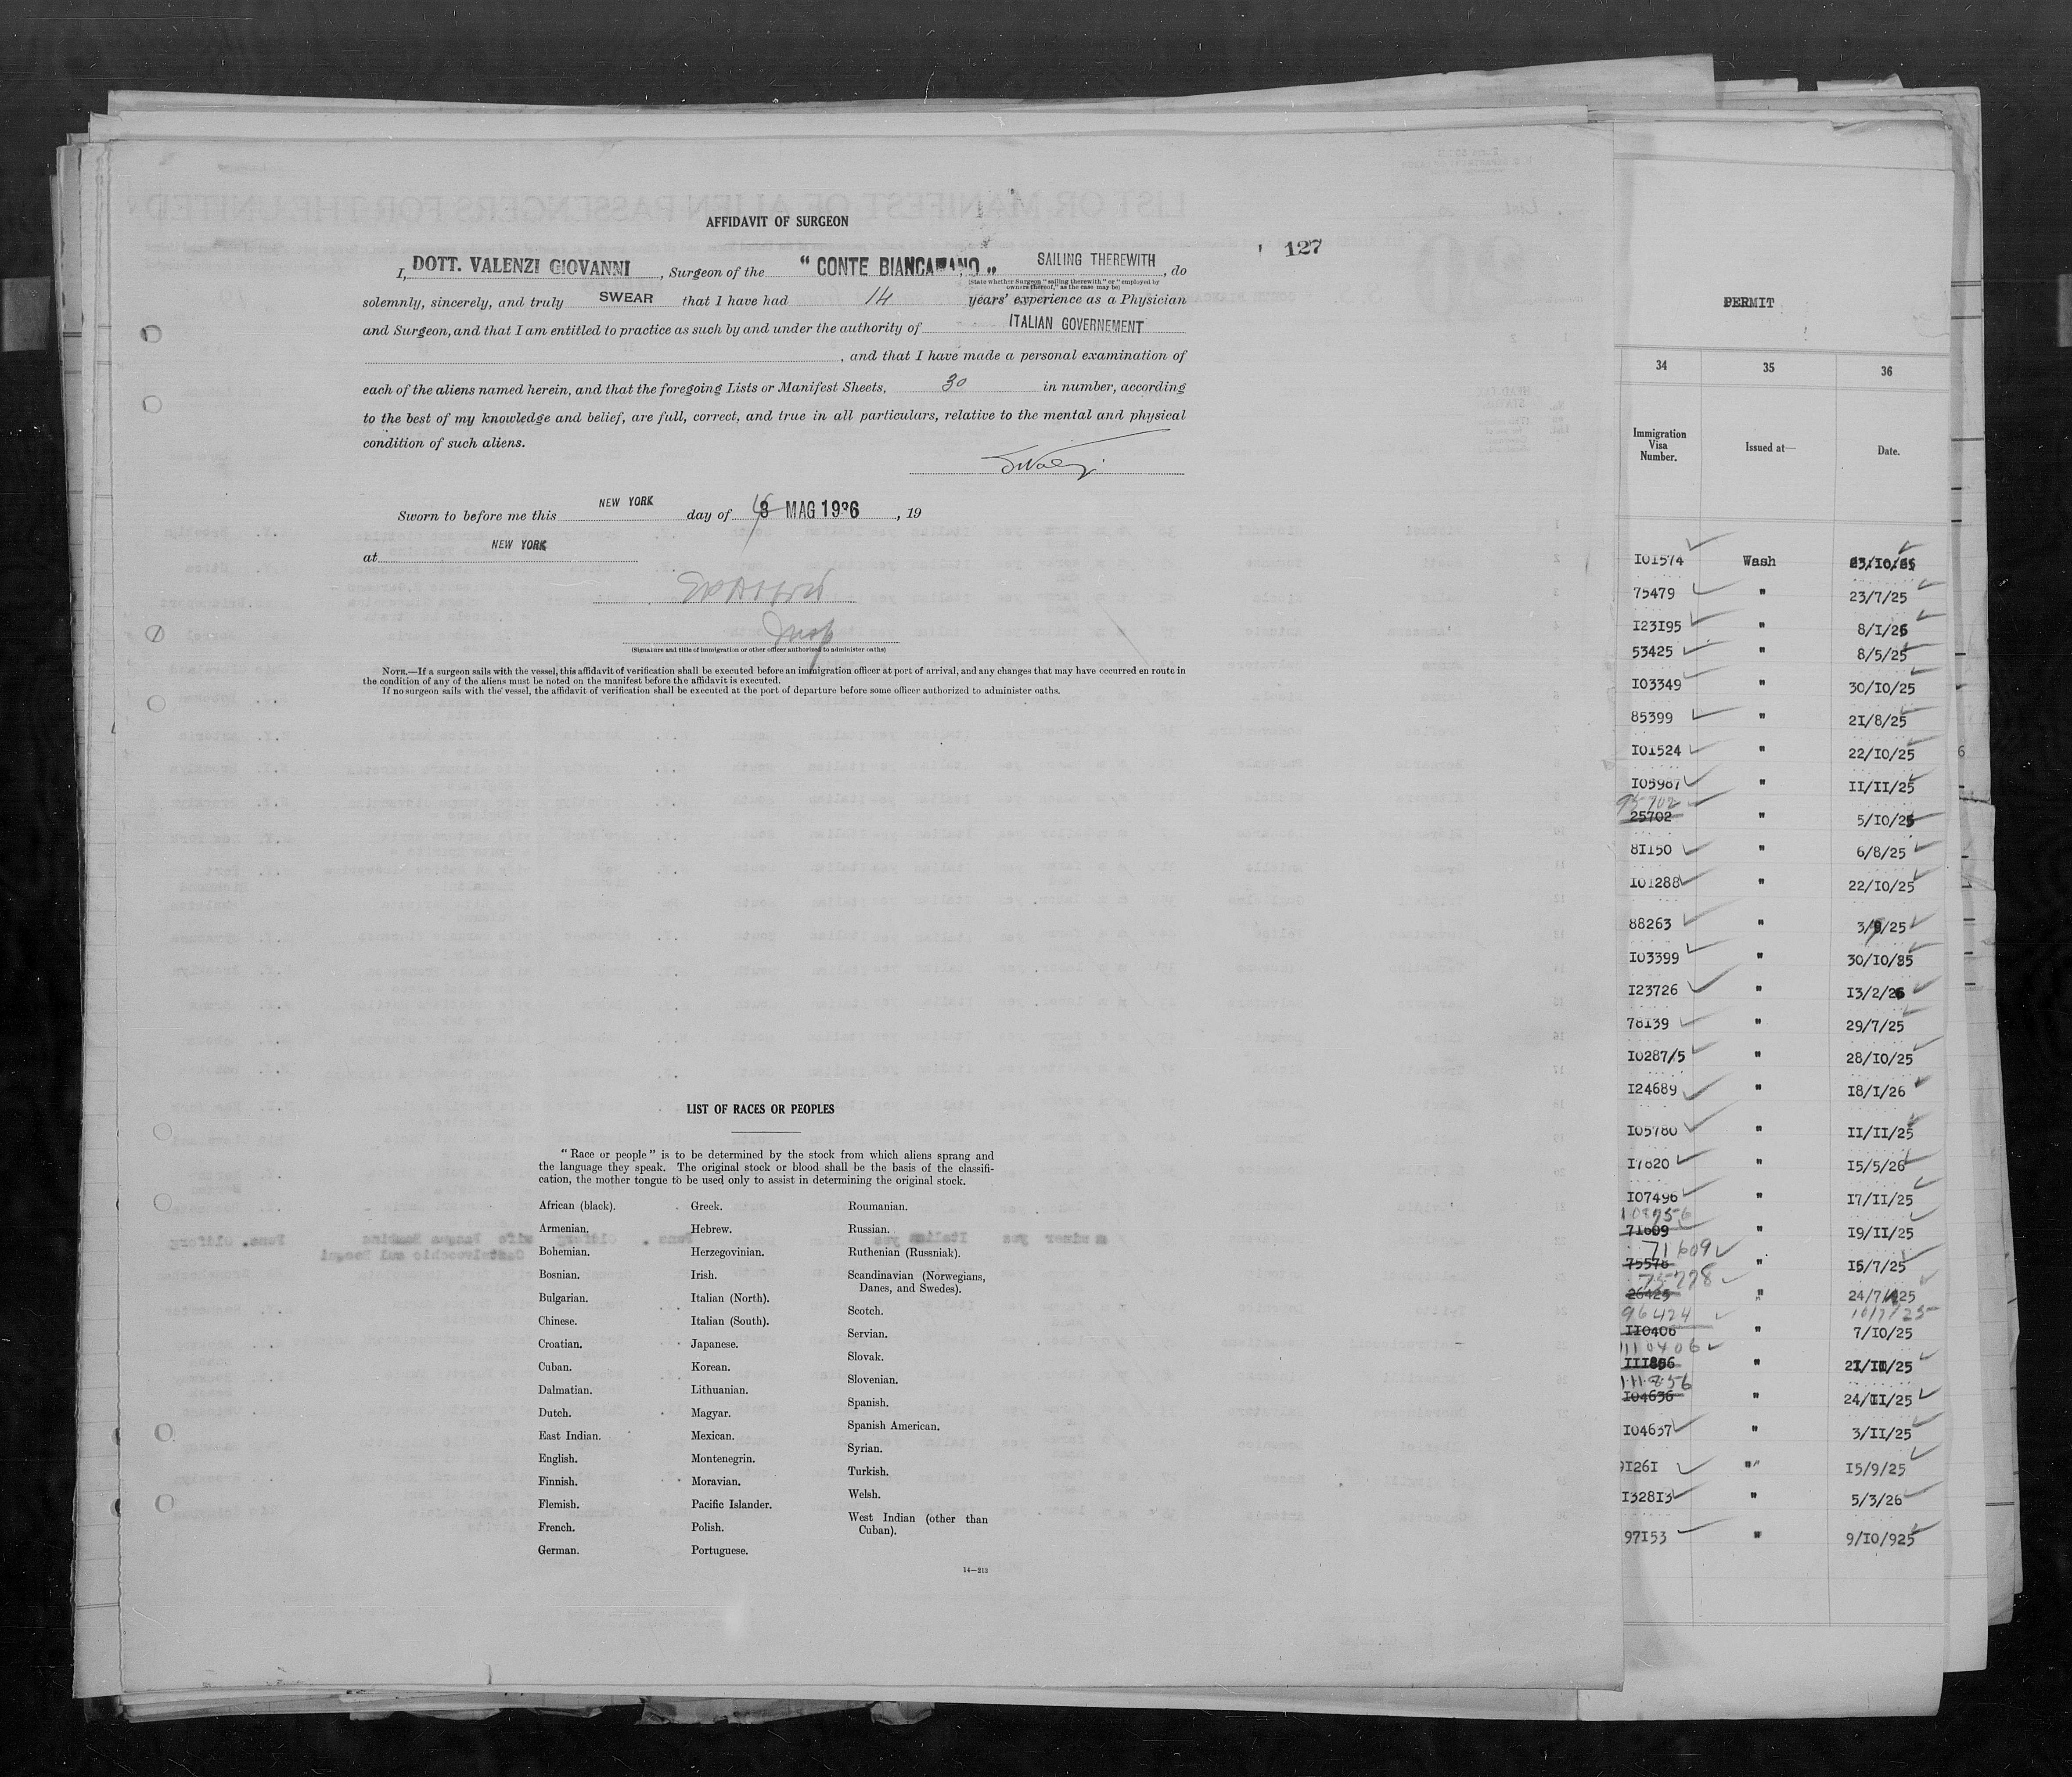 AFFIDAVIT OF SURGEON
127
I, DOTT. VALENZI GIOVANNI, Surgeon of the “ CONTE BIANCAMANO „ SAILING THEREWITH, do
(State whether Surgeon “sailing therewith” or “employed by
owners thereof,” as the case may be)
solemnly, sincerely, and truly SWEAR that I have had 14 years' experience as a Physician
and Surgeon, and that I am entitled to practice as such by and under the authority of ITALIAN GOVERNEMENT
, and that I have made a personal examination of
each of the aliens named herein, and that the foregoing Lists or Manifest Sheets, 30 in number, according
to the best of my knowledge and belief, are full, correct, and true in all particulars, relative to the mental and physical
condition of such aliens.
Sworn to before me this NEW YORK day of MAG 1926, 19
at NEW YORK
Insp
(Signature and title of immigration or other officer authorized to administer oaths)
NOTE.—If a surgeon sails with the vessel, this affidavit of verification shall be executed before an immigration officer at port of arrival, and any changes that may have occurred en route in
the condition of any of the aliens must be noted on the manifest before the affidavit is executed.
If no surgeon sails with the vessel, the affidavit of verification shall be executed at the port of departure before some officer authorized to administer oaths.
LIST OF RACES OR PEOPLES
“Race or people” is to be determined by the stock from which aliens sprang and
the language they speak. The original stock or blood shall be the basis of the classifi-
cation, the mother tongue to be used only to assist in determining the original stock.
African (black).
Armenian.
Bohemian.
Bosnian.
Bulgarian.
Chinese.
Croatian.
Cuban.
Dalmatian.
Dutch.
East Indian.
English.
Finnish.
Flemish.
French.
German.
Greek.
Hebrew.
Herzegovinian.
Irish.
Italian (North).
Italian (South).
Japanese.
Korean.
Lithuanian.
Magyar.
Mexican.
Montenegrin.
Moravian.
Pacific Islander.
Polish.
Portuguese.
Roumanian.
Russian.
Ruthenian (Russniak).
Scandinavian (Norwegians,
Danes, and Swedes).
Scotch.
Servian.
Slovak.
Slovenian.
Spanish.
Spanish American.
Syrian.
Turkish.
Welsh.
West Indian (other than
Cuban).
14—213
PERMIT
34 35 36
Immigration
Visa
Number.
Issued at—
Date.
I01574 Wash 23/10/25
75479 " 23/7/25
I23195 " 8/1/26
53425 " 8/5/25
I03349 " 30/10/25
85399 " 21/8/25
I01524 " 22/10/25
I05987 " II/II/25
95702
25702 " 5/10/25
81150 " 6/8/25
I01288 " 22/10/25
88263 " 3/9/25
I03399 " 30/10/25
I23726 " I3/2/26
78139 " 29/7/25
I0287/5 " 28/10/25
I24689 " I8/1/26
I05780 " II/II/25
I7820 " I5/5/26
I07496 " I7/II/25
108756
71609 " I9/II/25
71609
75578 " I6/7/25
75778
26425 " 24/7/25
96424 10/7/25
II0406 " 7/10/25
110406
III856 " 21/II/25
111856
I04636 " 24/II/25
I04637 " 3/II/25
91261 " I5/9/25
I32813 " 5/3/26
97I53 " 9/10/925